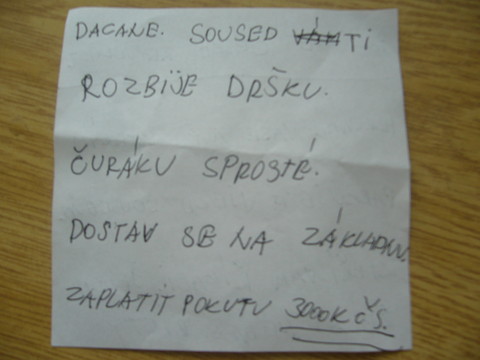 DACANE. SOUSED TI
ROZBIJE DRŠKU.
ČURÁKU SPROSTÉ.
DOSTAV SE NA ZÁKLADNU
ZAPLATIT POKUTU 3000KČS.